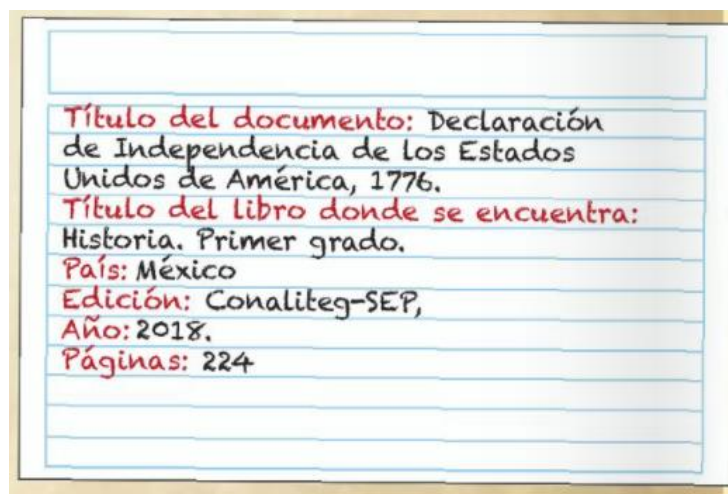 Título del documento: Declaración
de Independencia de los Estados
Unidos de América, 1776.
Título del libro donde se encuentra:
Historia. Primer grado.
País: México
Edición: Conaliteg-SEP,
Año: 2018.
Páginas: 224